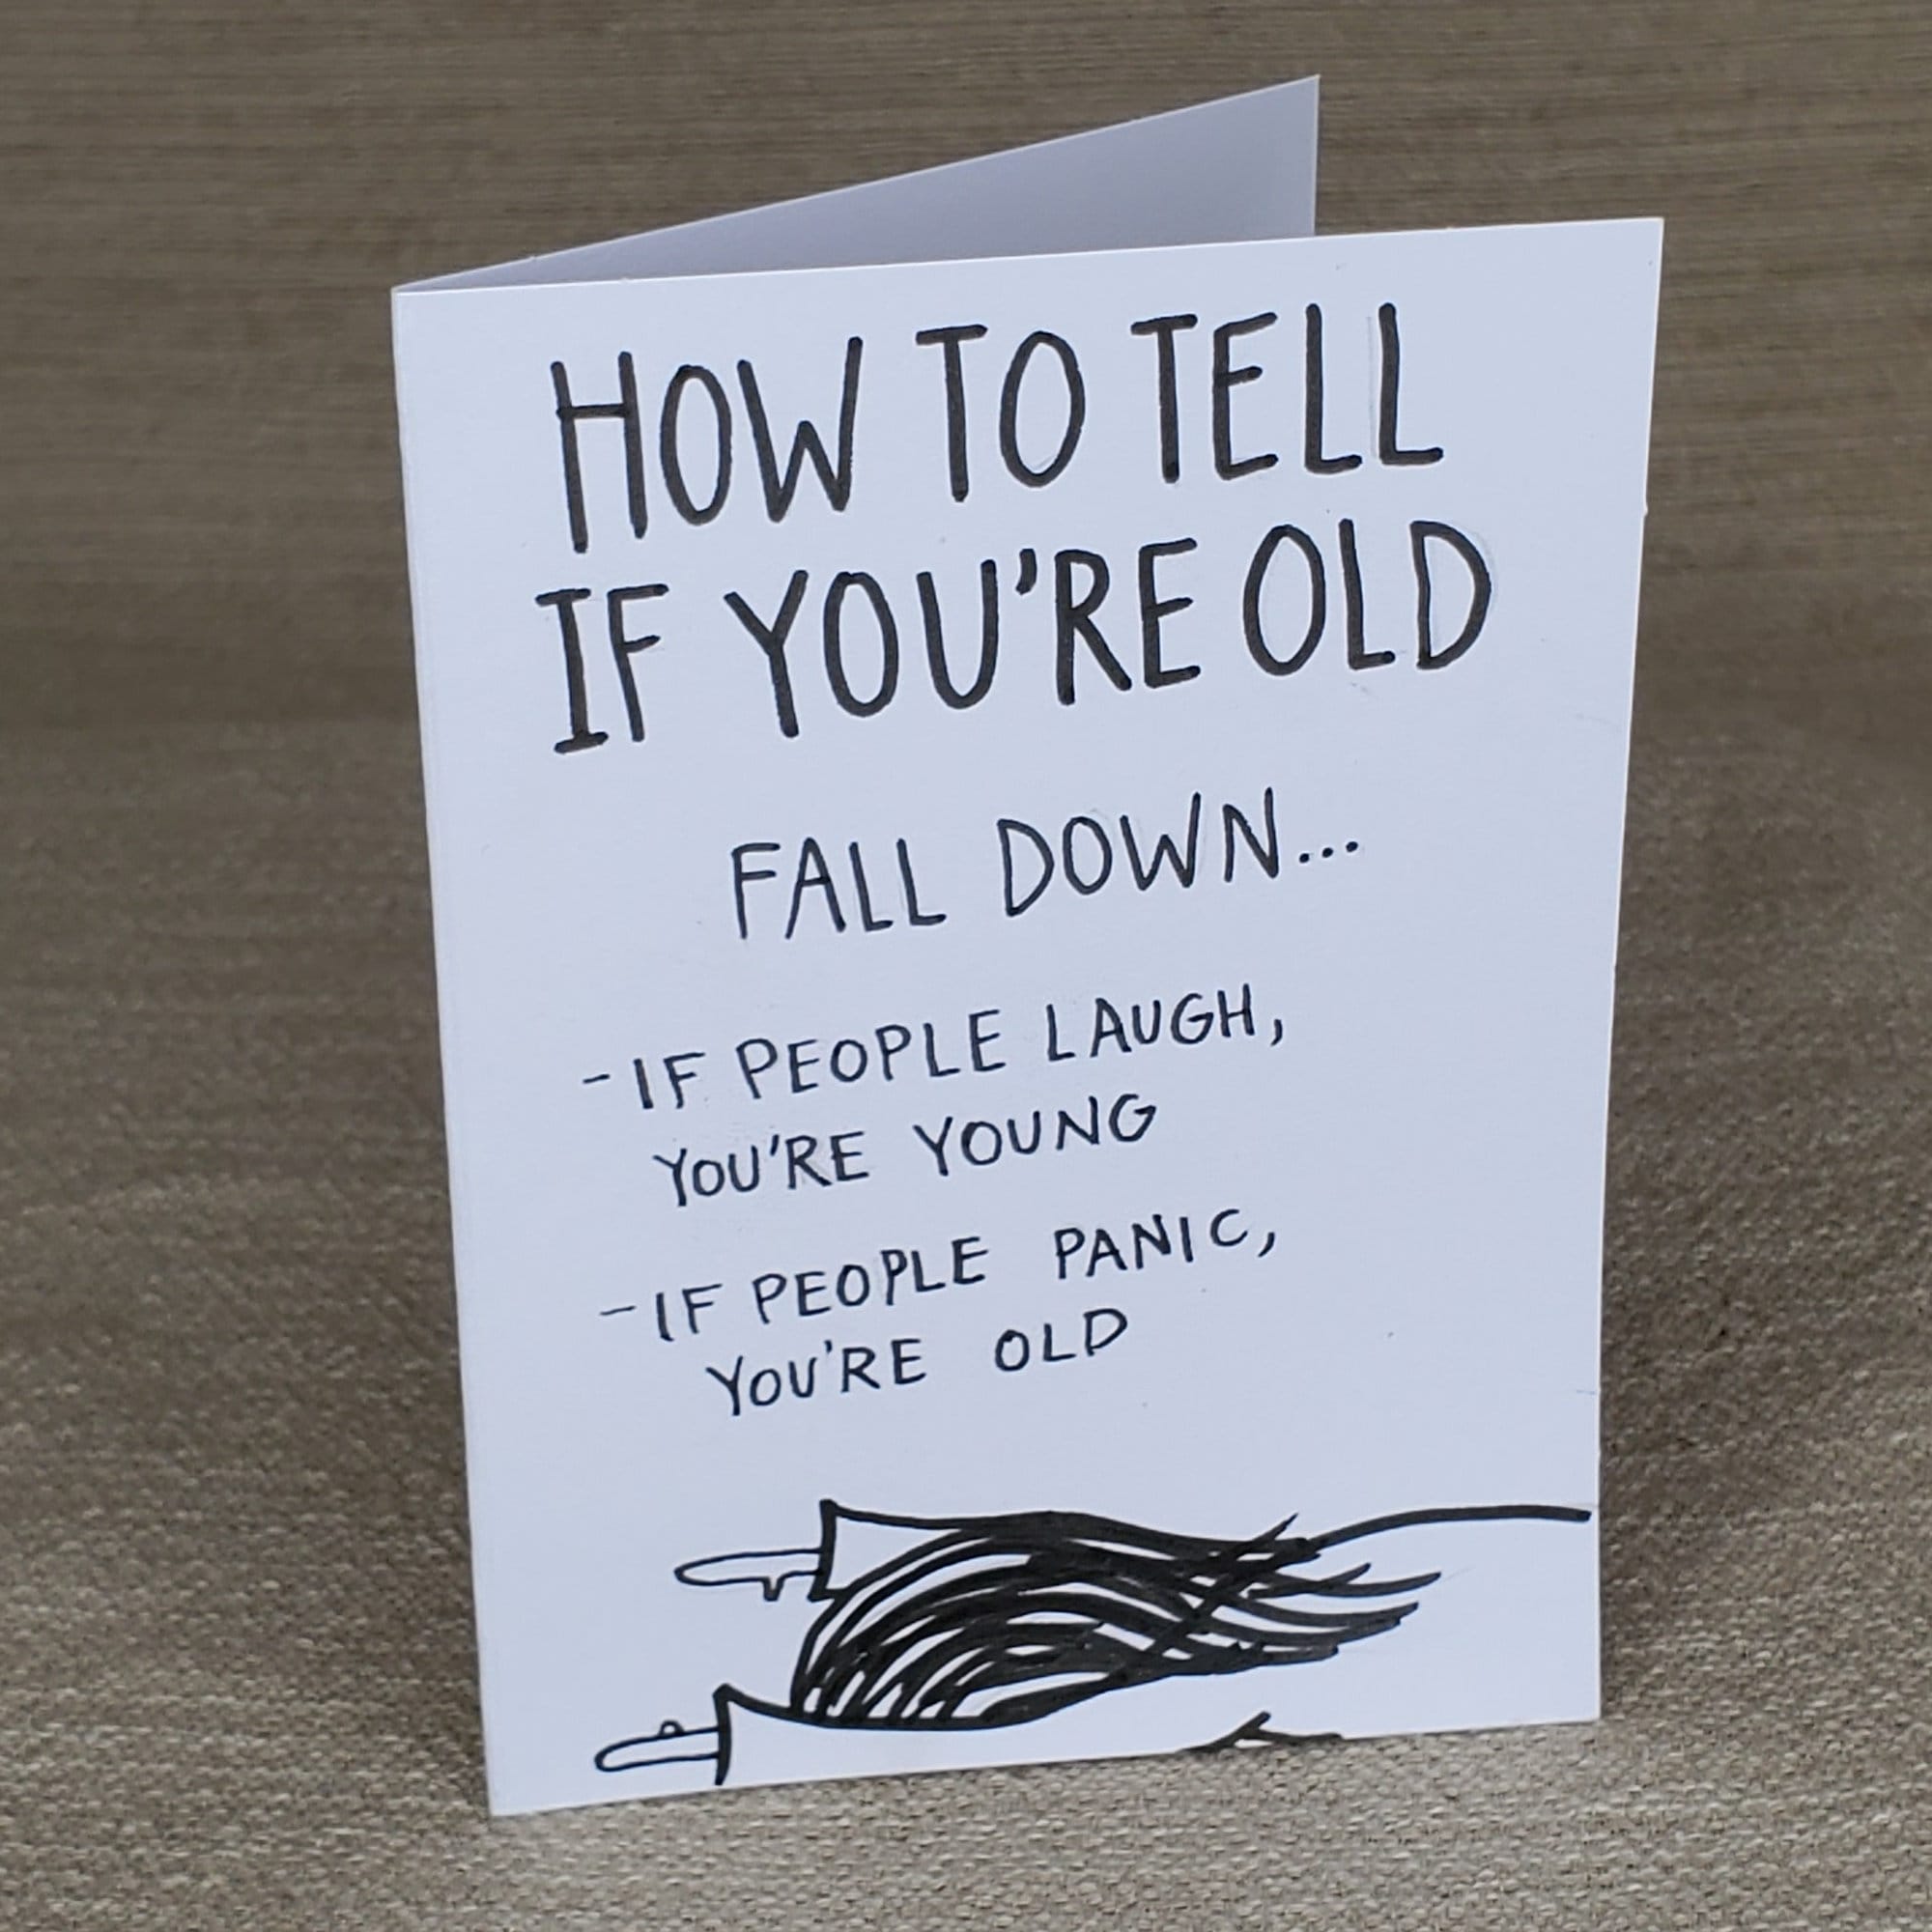 HOW TO TELL
IF YOU'RE OLD
FALL DOWN...
-IF PEOPLE LAUGH,
YOU'RE YOUNG
-IF PEOPLE PANIC,
YOU'RE OLD